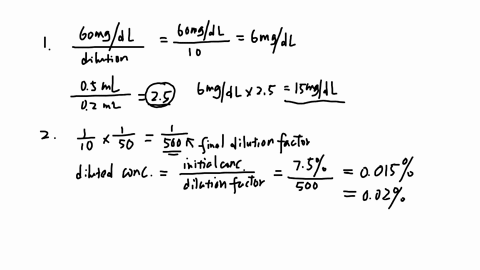 1. 60mg/dL / dilution = 60mg/dL / 10 = 6mg/dL
0.5 mL / 0.2 mL = 2.5 6mg/dL x 2.5 = 15mg/dL
2. 1/10 x 1/50 = 1/500 ↖ final dilution factor
diluted conc. = initial conc. / dilution factor = 7.5% / 500 = 0.015%
= 0.02%